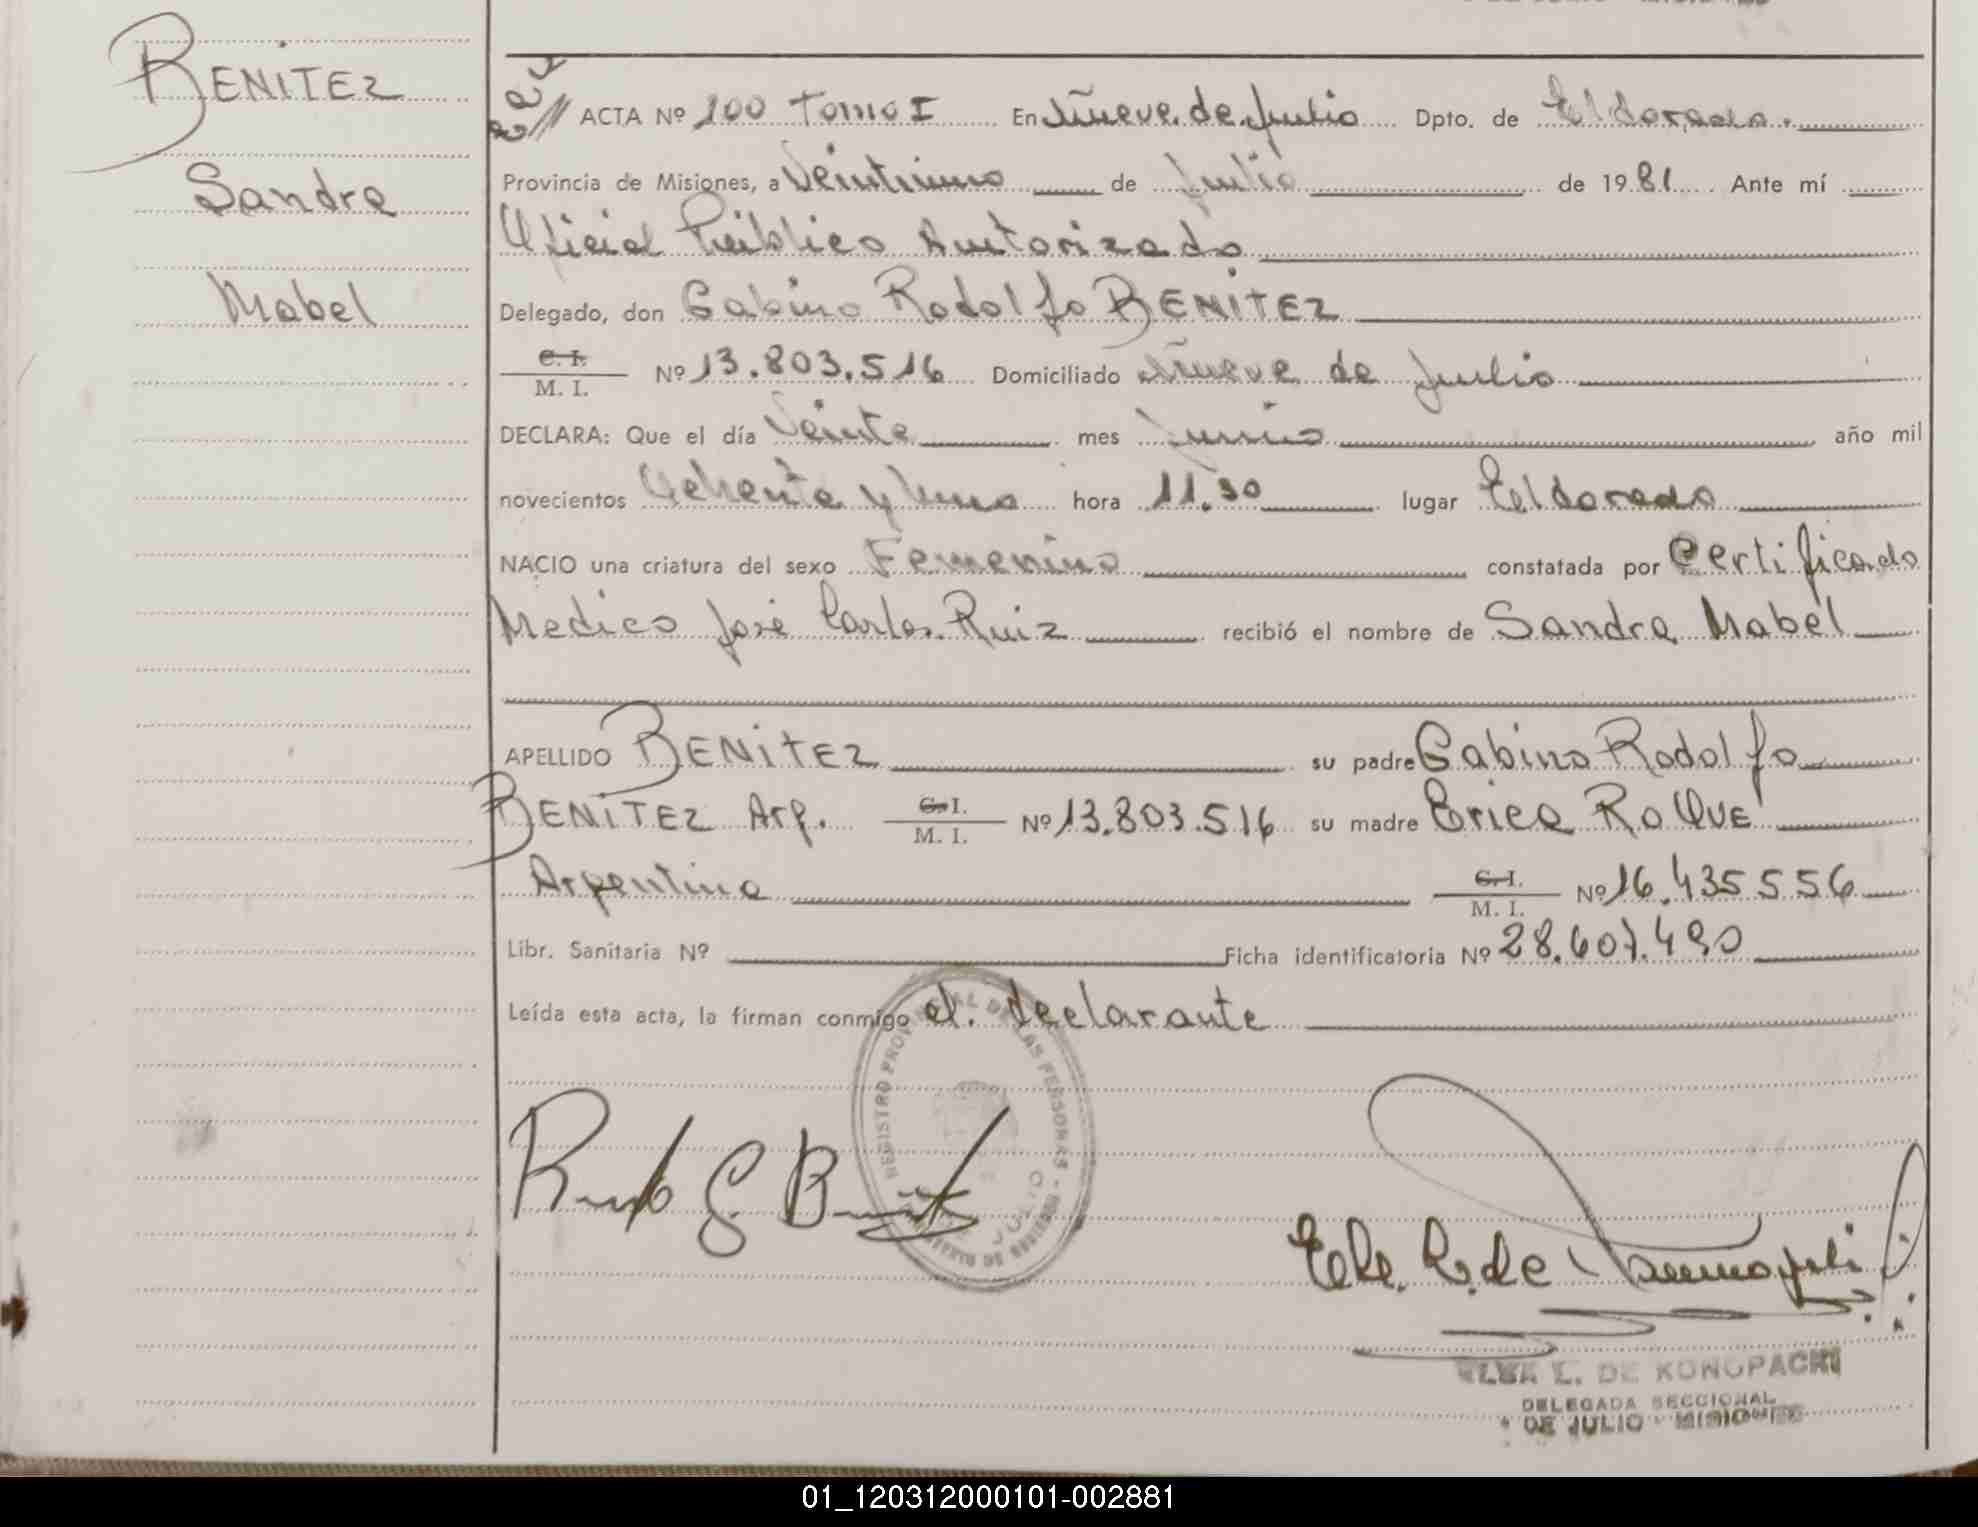 BENITEZ
Sandra
Mabel
ACTA Nº 100 Tomo I En Nueve de Julio Dpto. de Eldorado.
Provincia de Misiones, a Veintiuno de Julio de 1981 Ante mí
Oficial Público Autorizado
Delegado, don Gabino Rodolfo BENITEZ
C. I.
M. I. Nº 13.803.516 Domiciliado Nueve de Julio
DECLARA: Que el día Veinte mes Junio año mil
novecientos Ochenta y Uno hora 11.30 lugar Eldorado
NACIO una criatura del sexo Femenino constatada por Certificado
Medico José Carlos Ruiz recibió el nombre de Sandra Mabel
APELLIDO BENITEZ su padre Gabino Rodolfo
BENITEZ Arg. C. I. M. I. Nº 13.803.516 su madre Erica RoQUE
Argentina C. I. M. I. Nº 16.435556
Libr. Sanitaria Nº Ficha identificatoria Nº 28.607.490
Leída esta acta, la firman conmigo el declarante
REGISTRO PROVINCIAL DE LAS PERSONAS
JULIO
ELSA L. DE KONOPACKI
DELEGADA SECCIONAL
DE JULIO - MISIONES
01_120312000101-002881